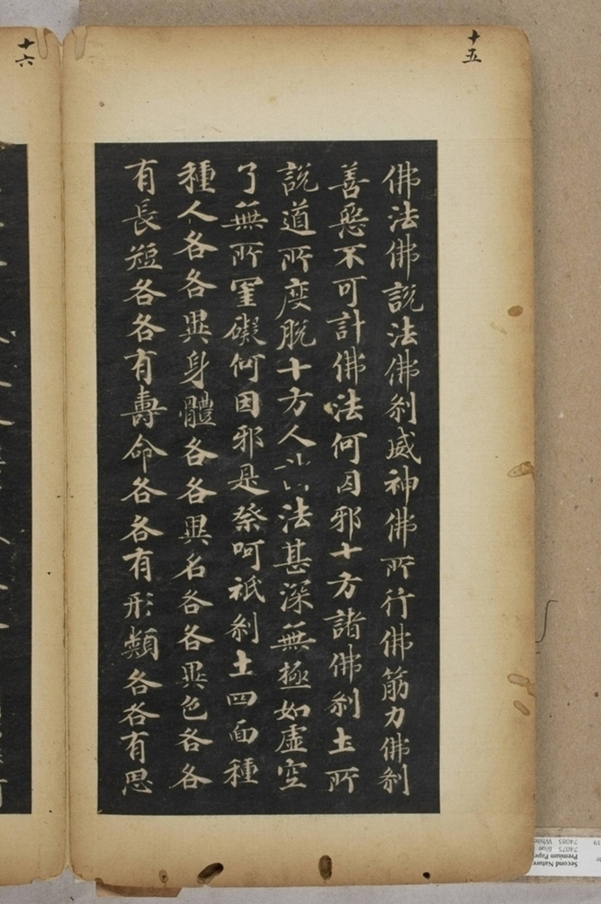 十五
佛法佛說法佛剎威神佛所行佛筋力佛剎
善惡不可計佛法何因邪十方諸佛剎土所
說道所度脫十方人 法甚深無極如虛空
了無所罣礙何因邪是祭呵祇剎土四面種
種人各各異身體各各異名各各異色各各
有長短各各有壽命各各有形類各各有思
十六
Second Nature
Premium Pape
74075 Blue
74085 White